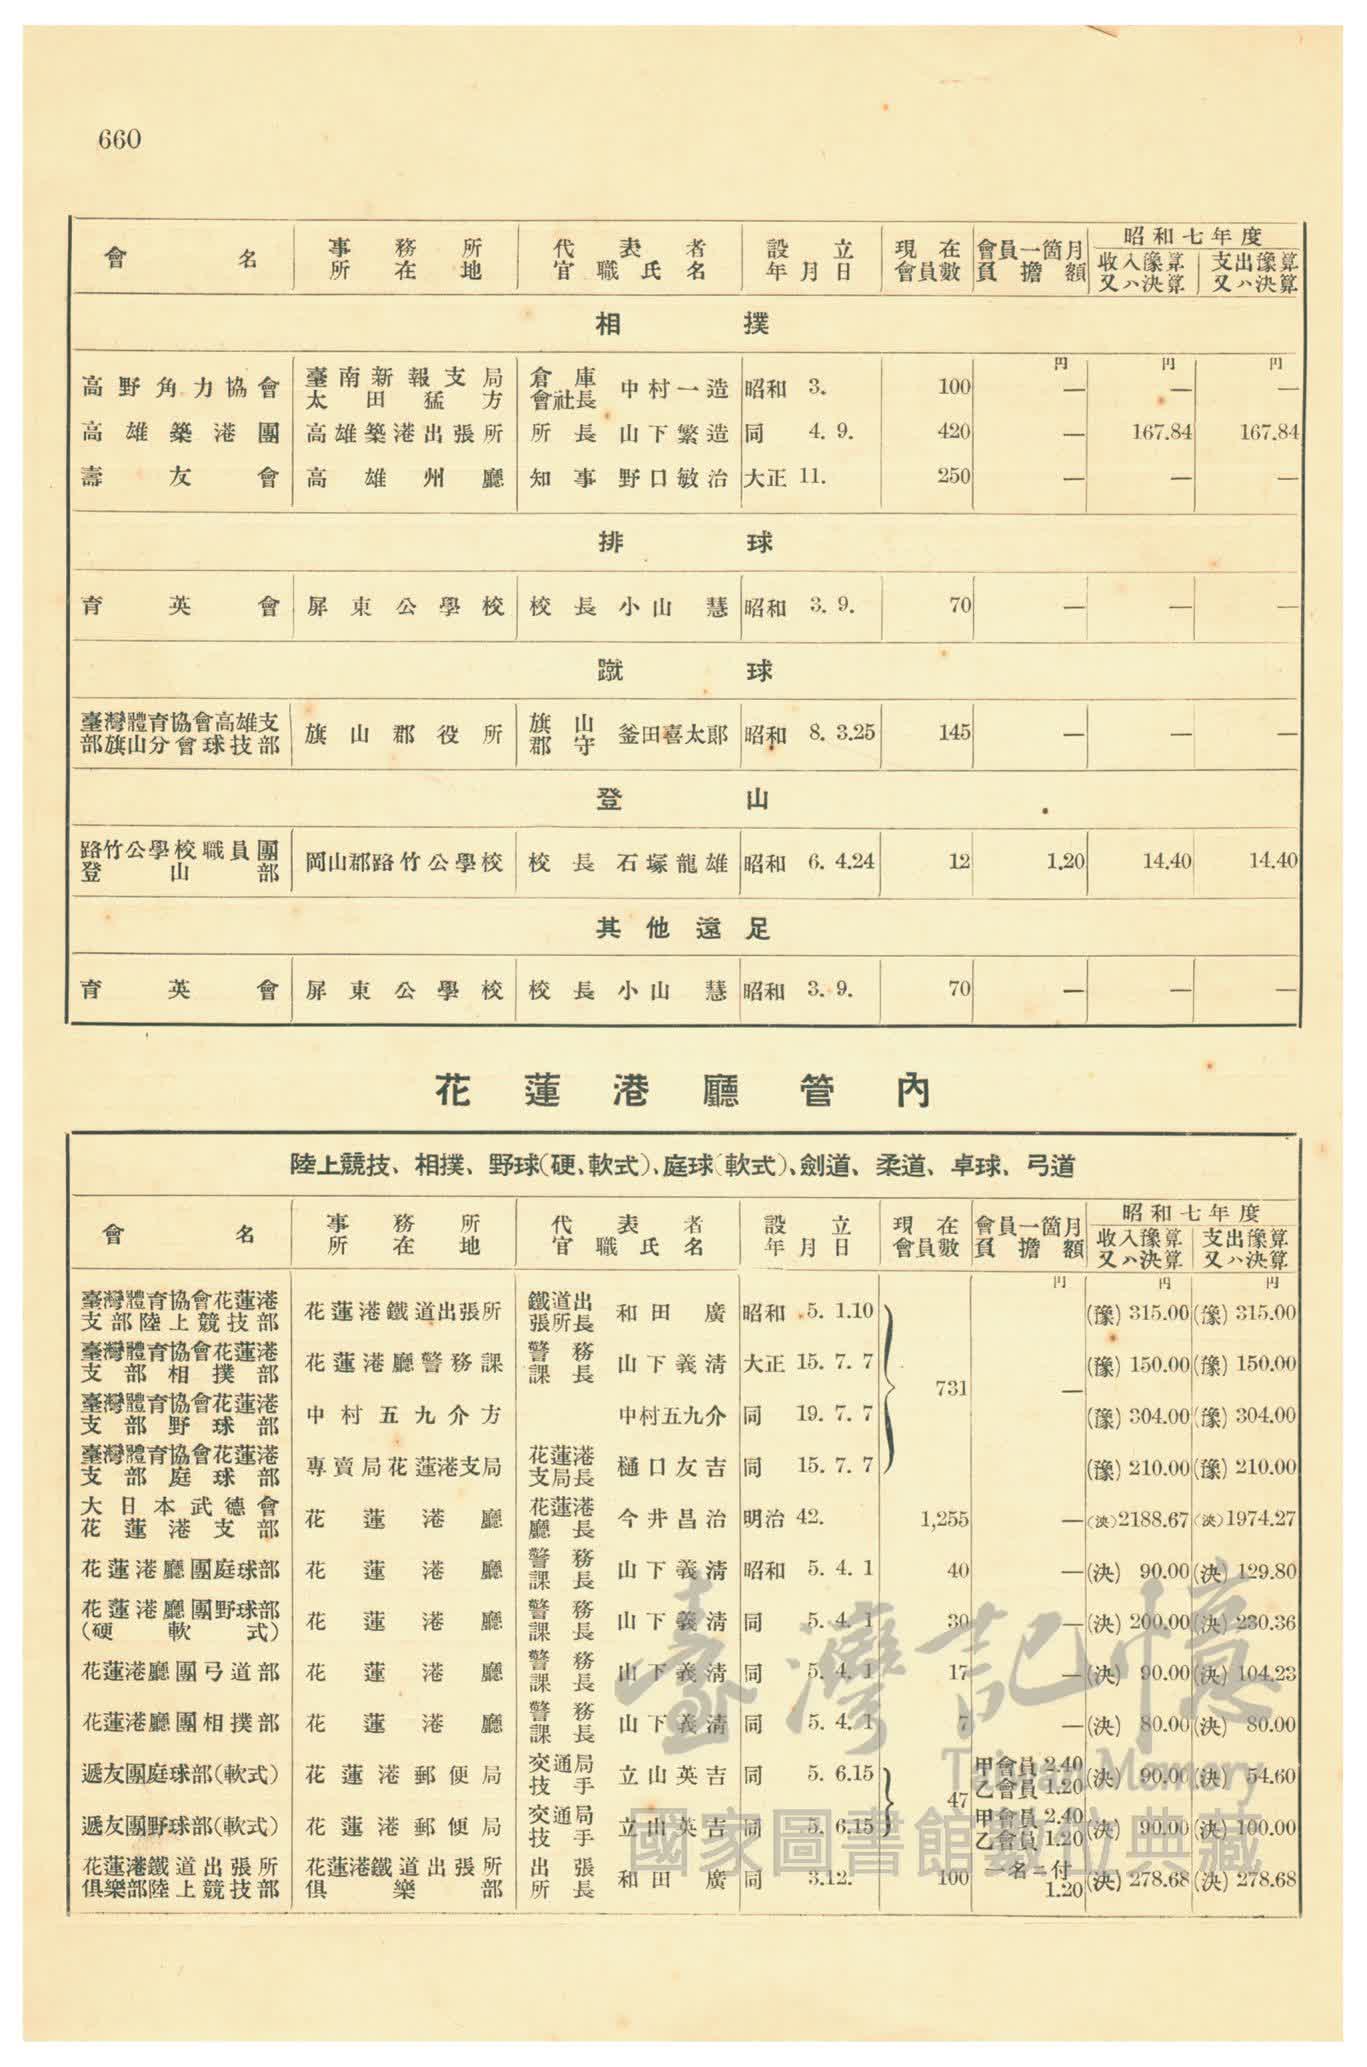 660
會名 事務所所在地 代表者官職氏名 設立年月日 現在會員數 會員一箇月負擔額 昭和七年度 收入豫算又ハ決算 支出豫算又ハ決算
相撲
円 円 円
高野角力協會 臺南新報支局太田猛方 倉庫會社長 中村一造 昭和 3. 100 — — —
高雄築港團 高雄築港出張所 所長 山下繁造 同 4. 9. 420 — 167.84 167.84
壽友會 高雄州廳 知事 野口敏治 大正 11. 250 — — —
排球
育英會 屏東公學校 校長 小山慧 昭和 3. 9. 70 — — —
蹴球
臺灣體育協會高雄支部旗山分會球技部 旗山郡役所 旗山郡守 釜田喜太郞 昭和 8. 3.25 145 — — —
登山
路竹公學校職員團登山部 岡山郡路竹公學校 校長 石塚龍雄 昭和 6. 4.24 12 1.20 14.40 14.40
其他遠足
育英會 屏東公學校 校長 小山慧 昭和 3. 9. 70 — — —
花蓮港廳管內
陸上競技、相撲、野球(硬、軟式)、庭球(軟式)、劍道、柔道、卓球、弓道
會名 事務所所在地 代表者官職氏名 設立年月日 現在會員數 會員一箇月負擔額 昭和七年度 收入豫算又ハ決算 支出豫算又ハ決算
円 円 円
臺灣體育協會花蓮港支部陸上競技部 花蓮港鐵道出張所 鐵道出張所長 和田廣 昭和 5. 1.10 (豫) 315.00 (豫) 315.00
臺灣體育協會花蓮港支部相撲部 花蓮港廳警務課 警務課長 山下義淸 大正 15. 7. 7 731 — (豫) 150.00 (豫) 150.00
臺灣體育協會花蓮港支部野球部 中村五九介方 中村五九介 同 19. 7. 7 (豫) 304.00 (豫) 304.00
臺灣體育協會花蓮港支部庭球部 專賣局花蓮港支局 花蓮港支局長 樋口友吉 同 15. 7. 7 (豫) 210.00 (豫) 210.00
大日本武德會花蓮港支部 花蓮港廳 花蓮港廳長 今井昌治 明治 42. 1,255 — (決) 2188.67 (決) 1974.27
花蓮港廳團庭球部 花蓮港廳 警務課長 山下義淸 昭和 5. 4. 1 40 — (決) 90.00 (決) 129.80
花蓮港廳團野球部(硬軟式) 花蓮港廳 警務課長 山下義淸 同 5. 4. 1 30 — (決) 200.00 (決) 230.36
花蓮港廳團弓道部 花蓮港廳 警務課長 山下義淸 同 5. 4. 1 17 — (決) 90.00 (決) 104.23
花蓮港廳團相撲部 花蓮港廳 警務課長 山下義淸 同 5. 4. 1 7 — (決) 80.00 (決) 80.00
遞友團庭球部(軟式) 花蓮港郵便局 交通局技手 立山英吉 同 5. 6.15 47 甲會員 2.40 乙會員 1.20 (決) 90.00 (決) 54.60
遞友團野球部(軟式) 花蓮港郵便局 交通局技手 立山英吉 同 5. 6.15 甲會員 2.40 乙會員 1.20 (決) 90.00 (決) 100.00
花蓮港鐵道出張所俱樂部陸上競技部 花蓮港鐵道出張所俱樂部 出張所長 和田廣 同 3.12. 100 一名ニ付 1.20 (決) 278.68 (決) 278.68
臺灣記憶
Taiwan Memory
國家圖書館數位典藏